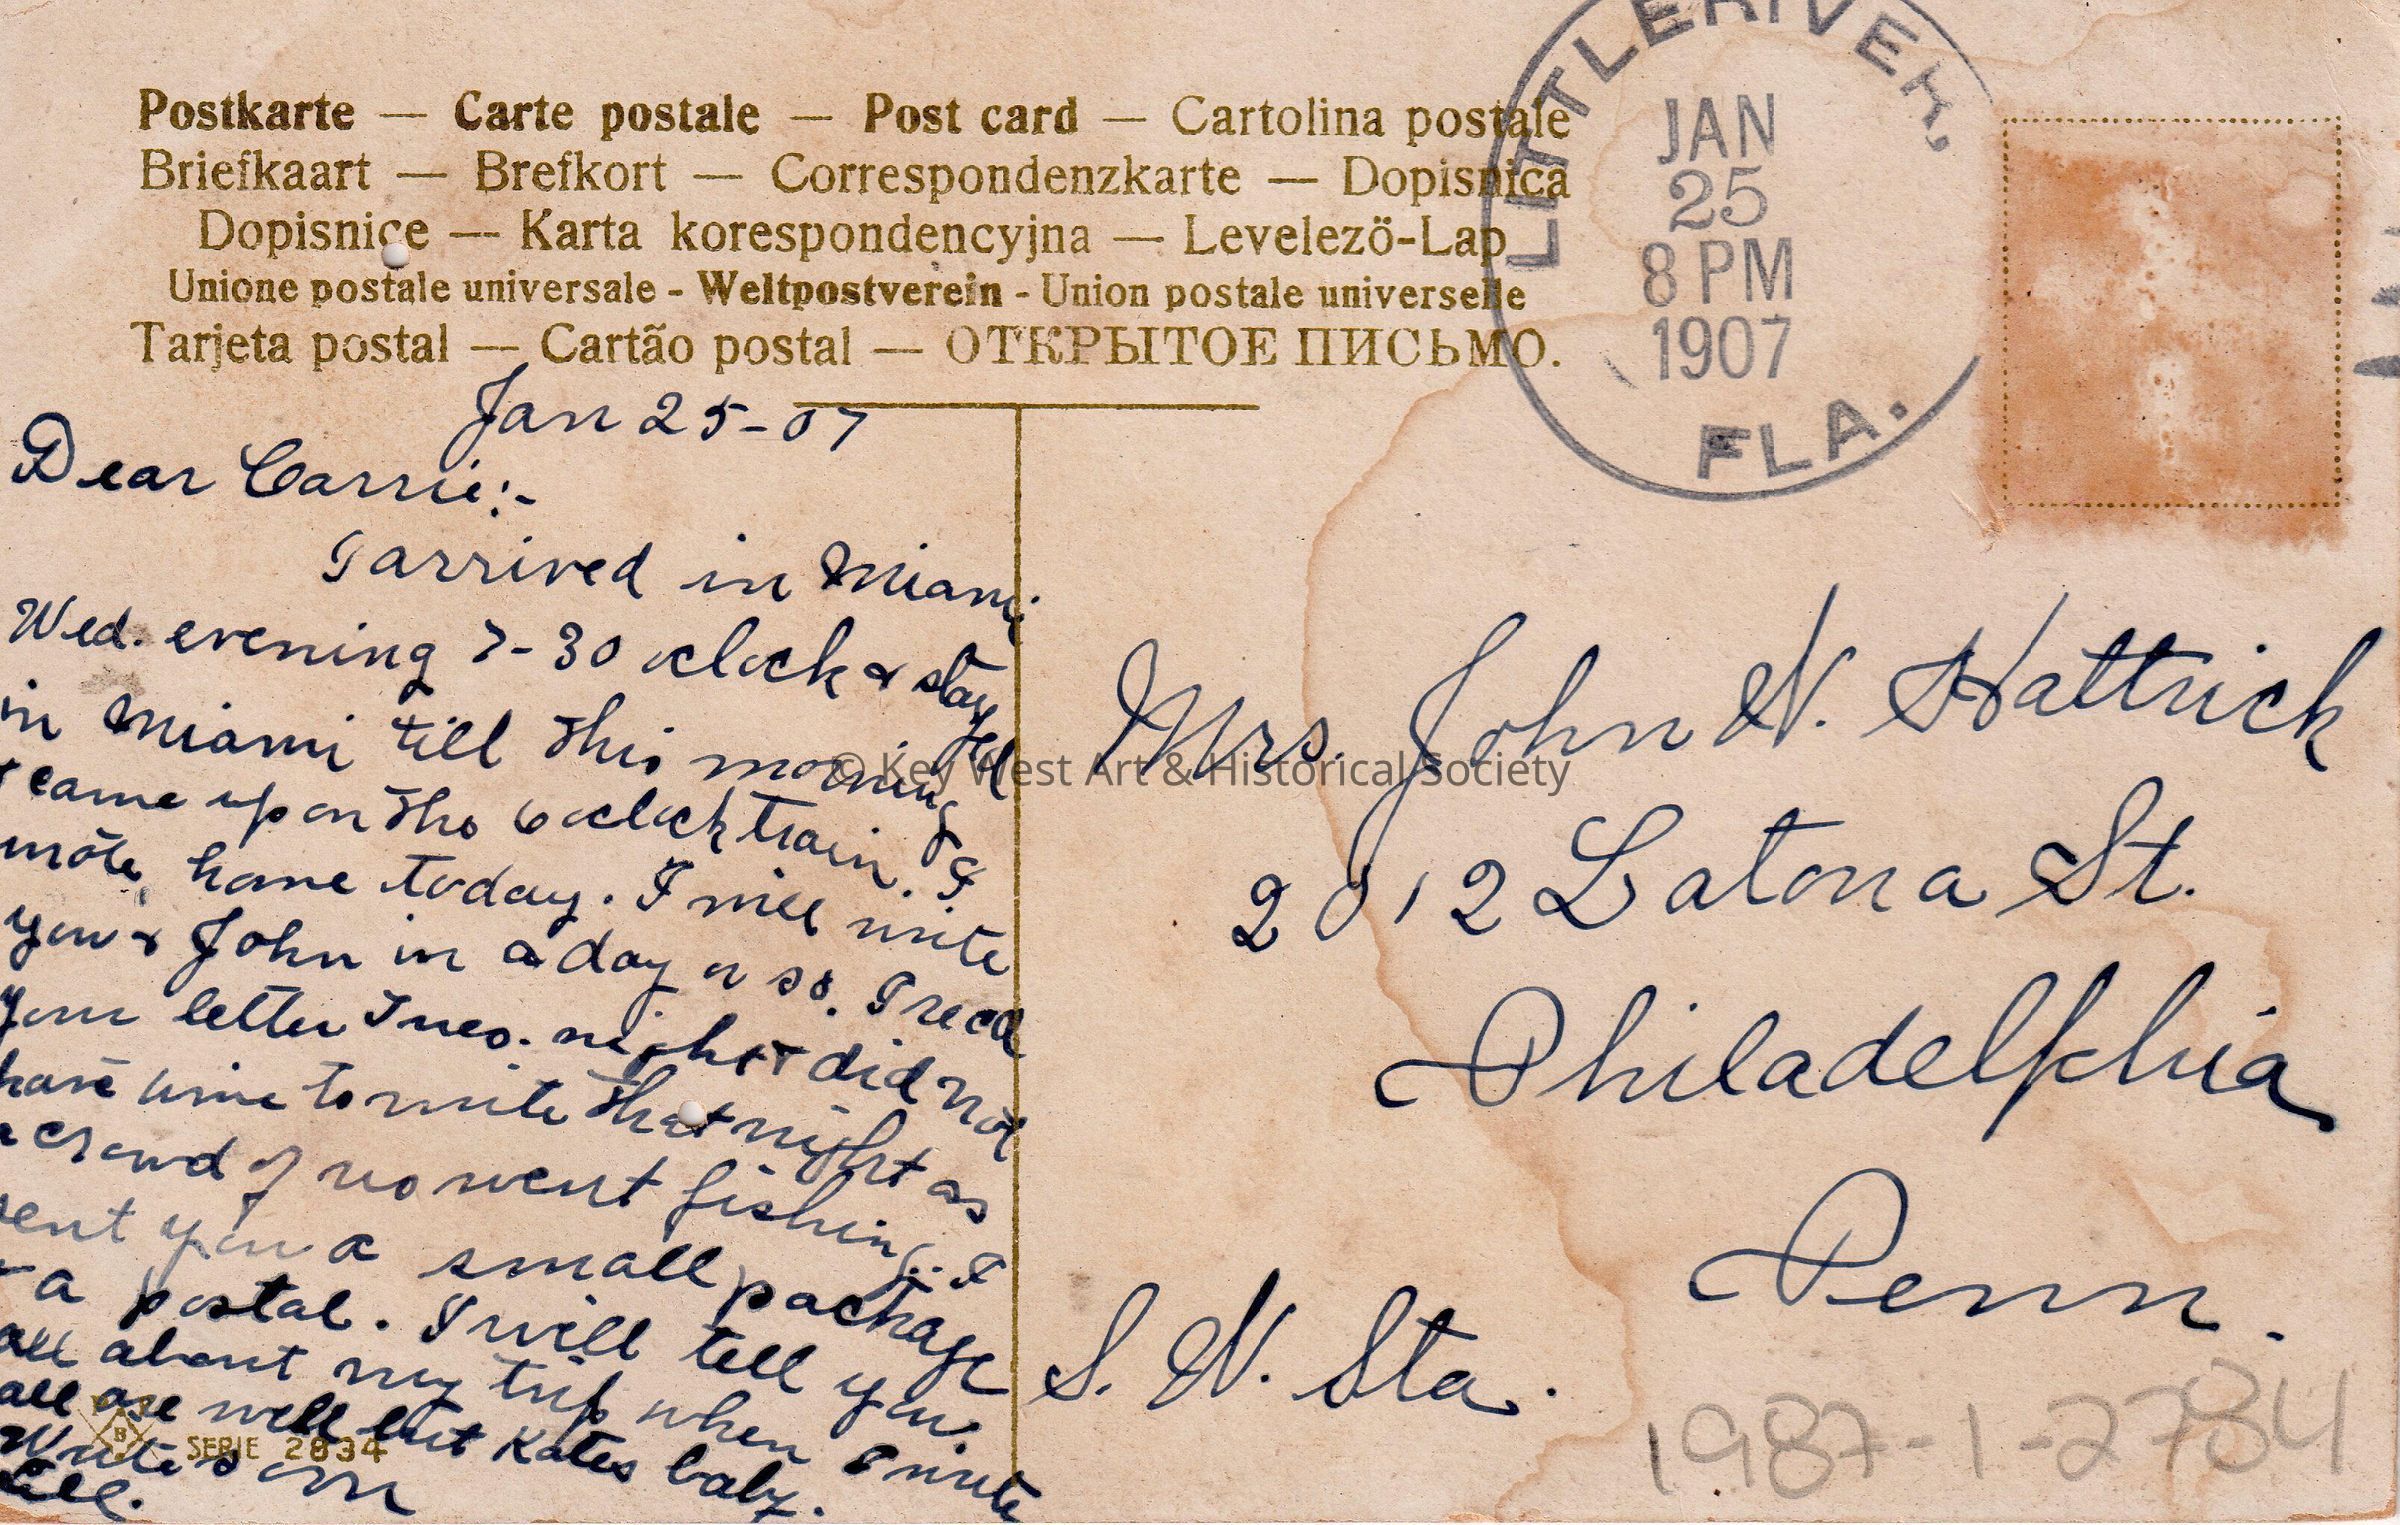 Postkarte — Carte postale — Post card — Cartolina postale
Briefkaart — Brefkort — Correspondenzkarte — Dopisnica
Dopisnice — Karta korespondencyjna — Levelező-Lap
Unione postale universale - Weltpostverein - Union postale universelle
Tarjeta postal — Cartão postal — ОТКРЫТОЕ ПИСЬМО.
LITTLERIVER,
JAN
25
8 PM
1907
FLA.
Jan 25-07
Dear Carrie:-
I arrived in Miami
Wed. evening 7-30 oclock & stayed
in Miami till this morning &
came up on the 6 oclock train. I
wrote home today. I will write
you & John in a day or so. I recd
your letter Tues. night & did not
have time to write that night as
a crowd of us went fishing. I
sent you a small package
& a postal. I will tell you
all about my trip when I write
all are well but Kates baby.
Write soon
Lill.
SERIE 2834
B
Mrs. John W. Hattrick
2012 Latona St.
Philadelphia
Penn.
S. W. Sta.
1987-1-2784
© Key West Art & Historical Society